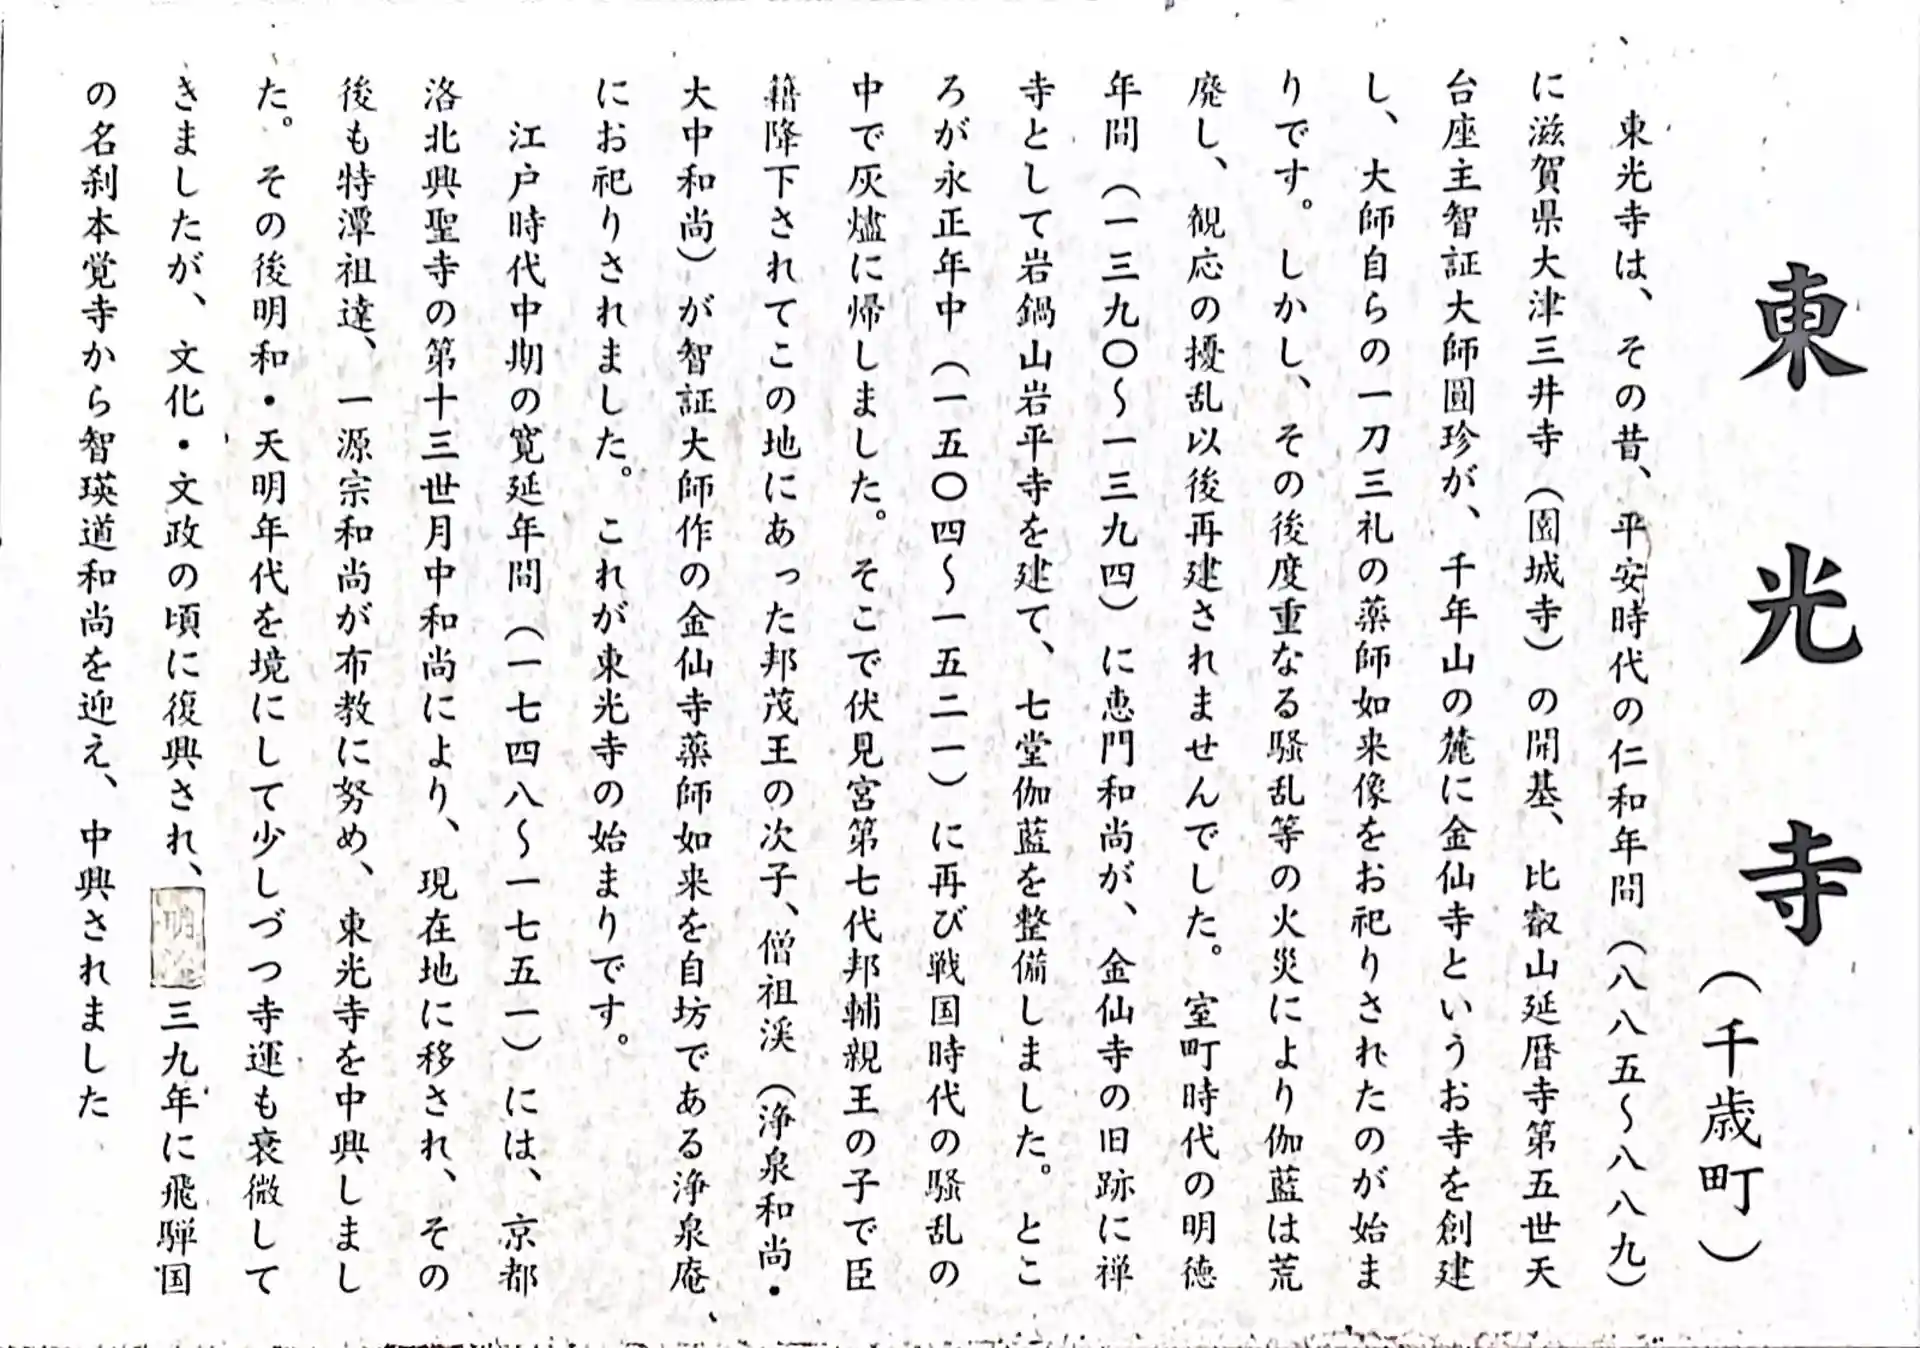 東光寺
（千歳町）
東光寺は、その昔、平安時代の仁和年間（八八五〜八八九）
に滋賀県大津三井寺（園城寺）の開基、比叡山延暦寺第五世天
台座主智証大師圓珍が、千年山の麓に金仙寺というお寺を創建
し、大師自らの一刀三礼の薬師如来像をお祀りされたのが始ま
りです。しかし、その後度重なる騒乱等の火災により伽藍は荒
廃し、観応の擾乱以後再建されませんでした。室町時代の明徳
年間（一三九〇〜一三九四）に恵門和尚が、金仙寺の旧跡に禅
寺として岩鍋山岩平寺を建て、七堂伽藍を整備しました。とこ
ろが永正年中（一五〇四〜一五二一）に再び戦国時代の騒乱の
中で灰燼に帰しました。そこで伏見宮第七代邦輔親王の子で臣
籍降下されてこの地にあった邦茂王の次子、僧祖渓（浄泉和尚・
大中和尚）が智証大師作の金仙寺薬師如来を自坊である浄泉庵、
にお祀りされました。これが東光寺の始まりです。
江戸時代中期の寛延年間（一七四八〜一七五一）には、京都
洛北興聖寺の第十三世月中和尚により、現在地に移され、その
後も特潭祖達、一源宗和尚が布教に努め、東光寺を中興しまし
た。その後明和・天明年代を境にして少しづつ寺運も衰微して
きましたが、文化・文政の頃に復興され、明治三九年に飛騨国
の名刹本覚寺から智瑛道和尚を迎え、中興されました